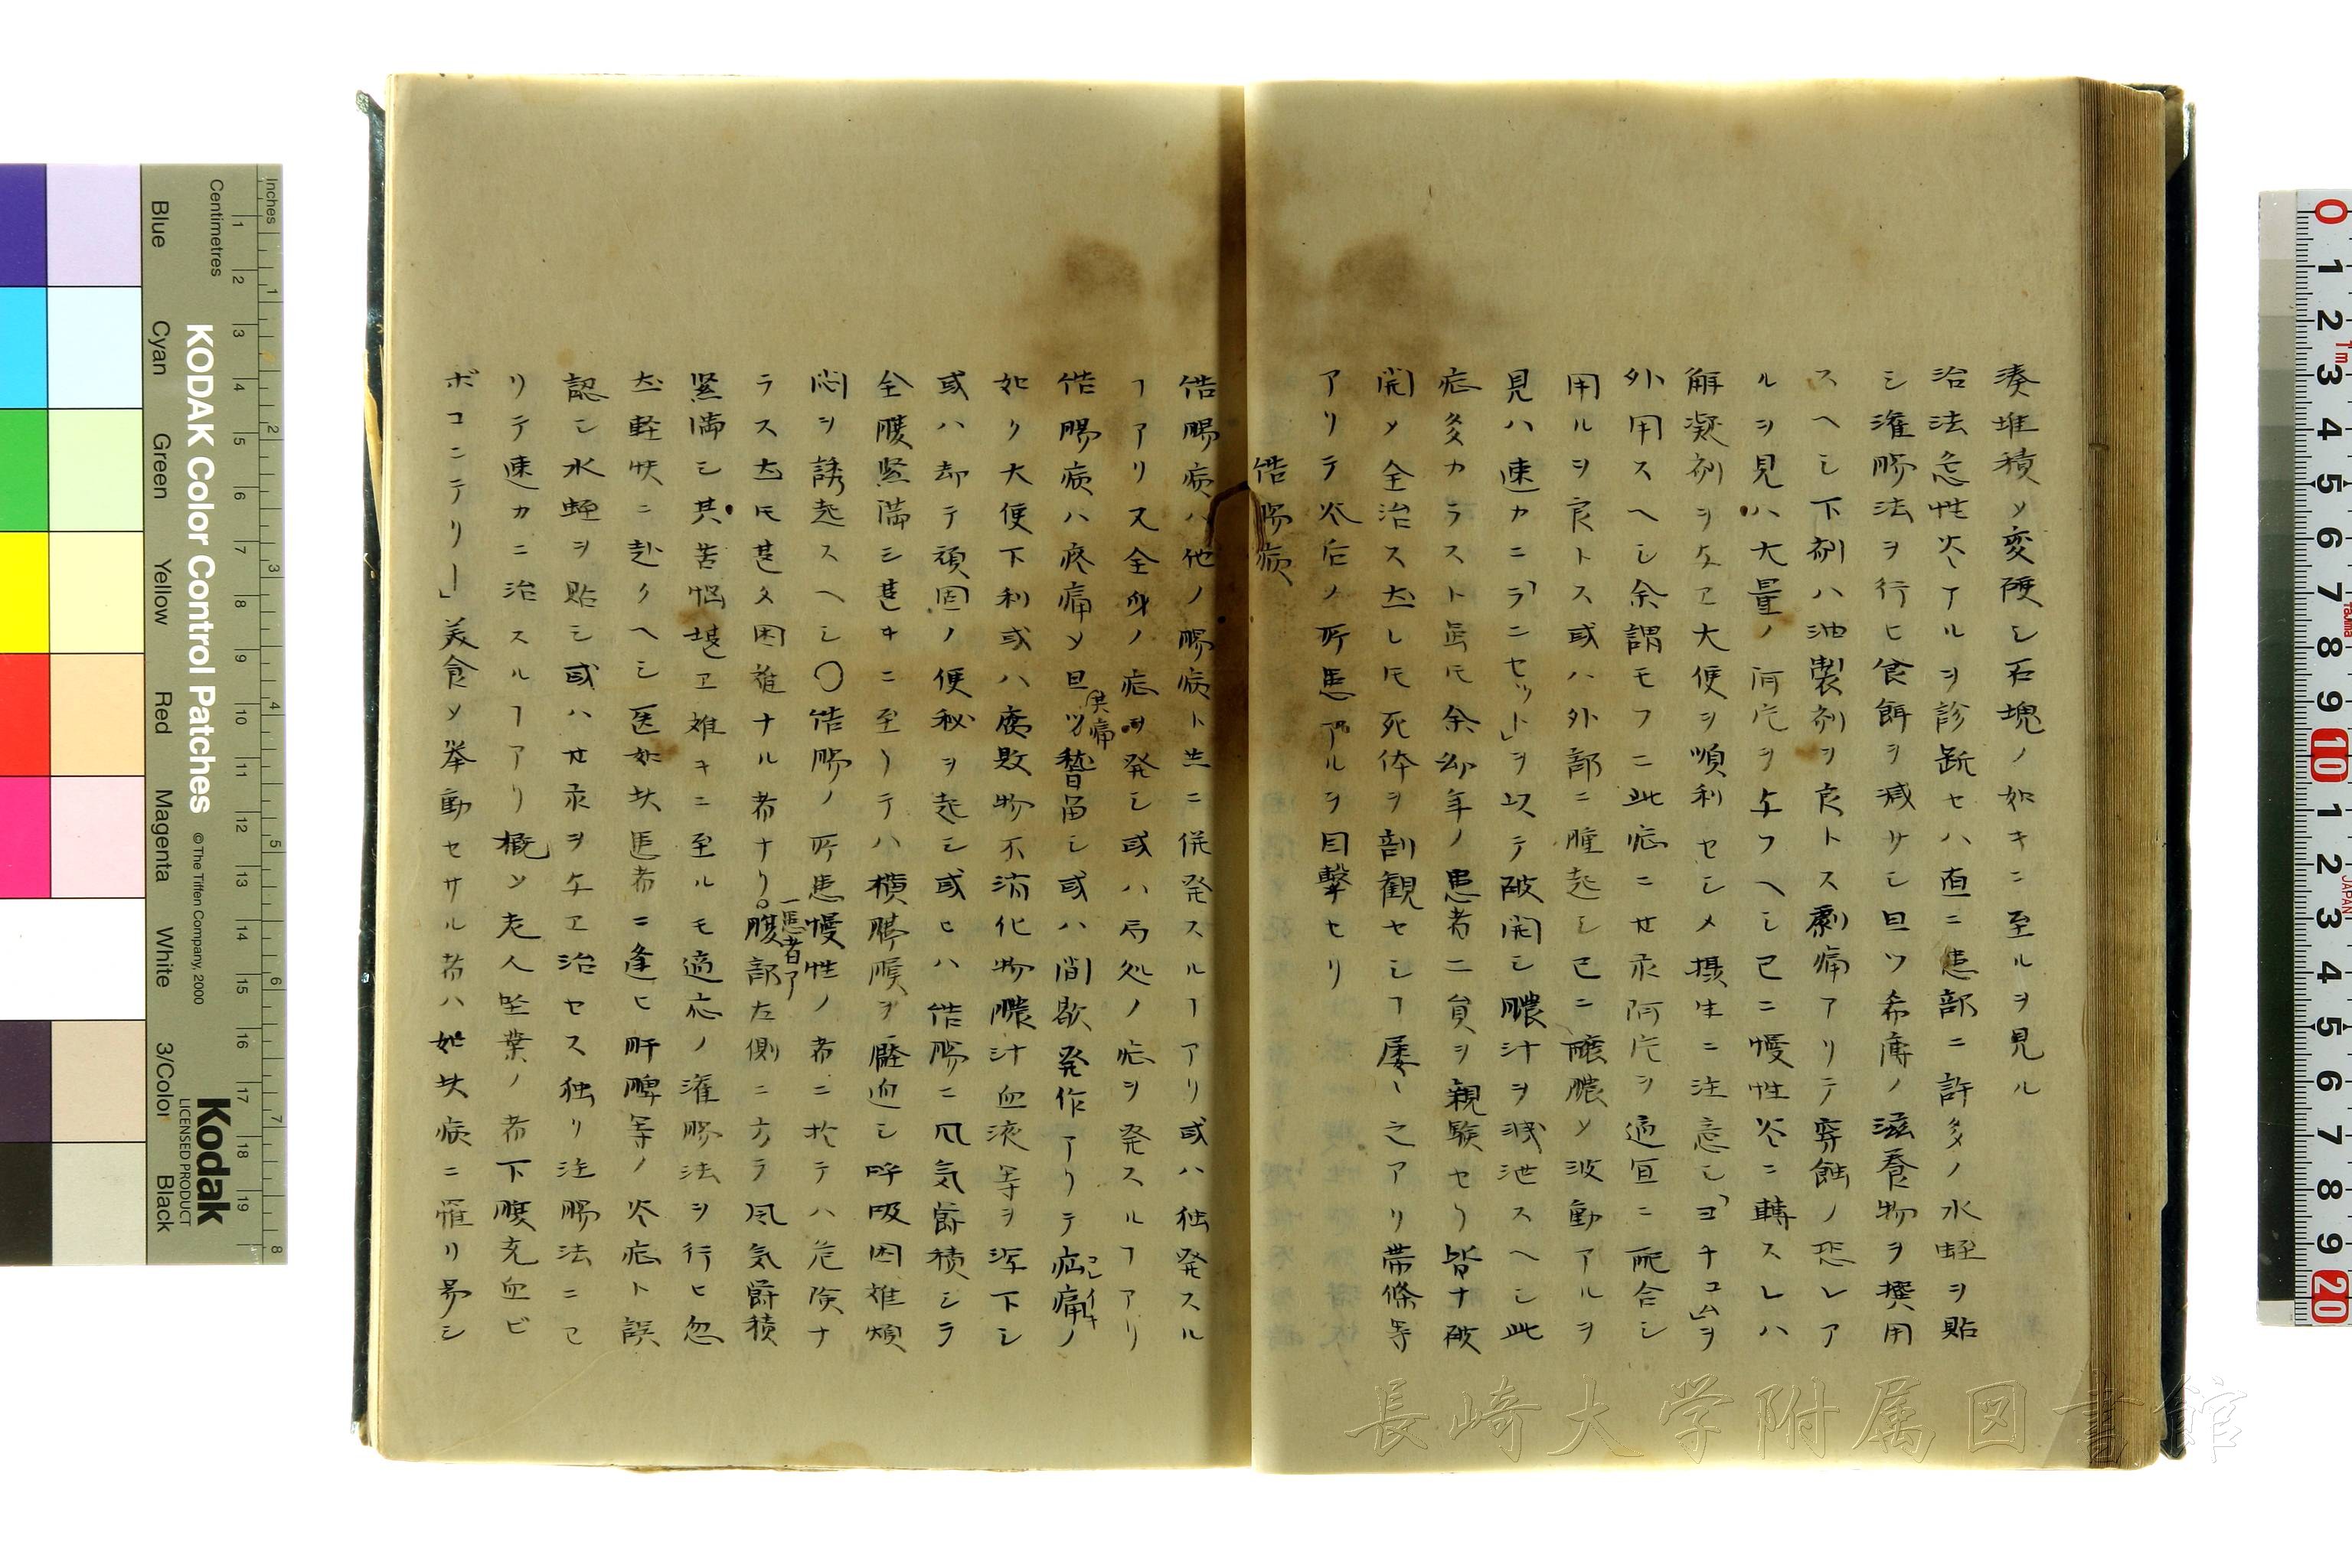 湊堆積メ変硬シ石塊ノ如キニ至ルヲ見ル
治法急性炎アルヲ診断セハ直ニ患部ニ許多ノ水蛭ヲ貼
シ潅腸法ヲ行ヒ食餌ヲ減サシ且ツ希薄ノ滋養物ヲ撰用
スヘシ下剤ハ油製剤ヲ良トス劇痛アリテ穿蝕ノ恐レア
ルヲ見ハ大量ノ阿片ヲ与フヘシ已ニ慢性炎ニ轉スレハ
解凝剤ヲ与エ大便ヲ順利セシメ摂生ニ注意シ「ヨチユム」ヲ
外用スヘシ余謂モフニ此症ニ甘汞阿片ヲ適宜ニ配合シ
用ルヲ良トス或ハ外部ニ腫起シ已ニ醸膿メ波動アルヲ
見ハ速カニ「ラニセット」ヲ以テ破開シ膿汁ヲ洩泄スヘシ此
症多カラスト虽𪜈余幼年ノ患者二貟ヲ親験セリ皆ナ破
開メ全治ス然レ𪜈死体ヲ剖観セシヿ屡〻之アリ帯條等
アリテ炎后ノ所患アルヲ目撃セリ
結腸病
結腸病ハ他ノ腸病ト共ニ併発スルヿアリ或ハ独発スル
ヿアリ又全身ノ症ヲ発シ或ハ局処ノ症ヲ発スルヿアリ
結腸病ハ疼痛メ且ツ其痛暫留シ或ハ間歇発作アリテ疝痛コレイキノ
如ク大便下利或ハ腐敗物不消化物膿汁血液等ヲ瀉下シ
或ハ却テ頑固ノ便秘ヲ起シ或ヒハ結腸ニ風気欝積シテ
全腹緊満シ甚キニ至リテハ横膈膜ヲ壓迫シ呼吸困難煩
悶ヲ誘起スヘシ〇結腸ノ所患慢性ノ者ニ於テハ危険ナ
ラス然𪜈甚タ困難ナル者ナリ。一患者アリ腹部左側ニ方テ風気欝積
緊満シ其苦悩堪エ難キニ至ルモ適応ノ潅腸法ヲ行ヒ忽
然軽快ニ赴クヘシ医如斯患者ニ逢ヒ肝脾等ノ炎症ト誤
認シ水蛭ヲ貼シ或ハ甘汞ヲ与エ治セス独リ注腸法ニヨ
リテ速カニ治スルヿアリ概ソ老人坐業ノ者下腹充血ヒ
ポコンデリー」美食メ挙動セサル者ハ如斯病ニ罹リ易シ
長崎大学附属図書館
KODAK Color Control Patches
© The Tiffen Company, 2000
Kodak
LICENSED PRODUCT
Inches
Centimetres
Blue
Cyan
Green
Yellow
Red
Magenta
White
3/Color
Black